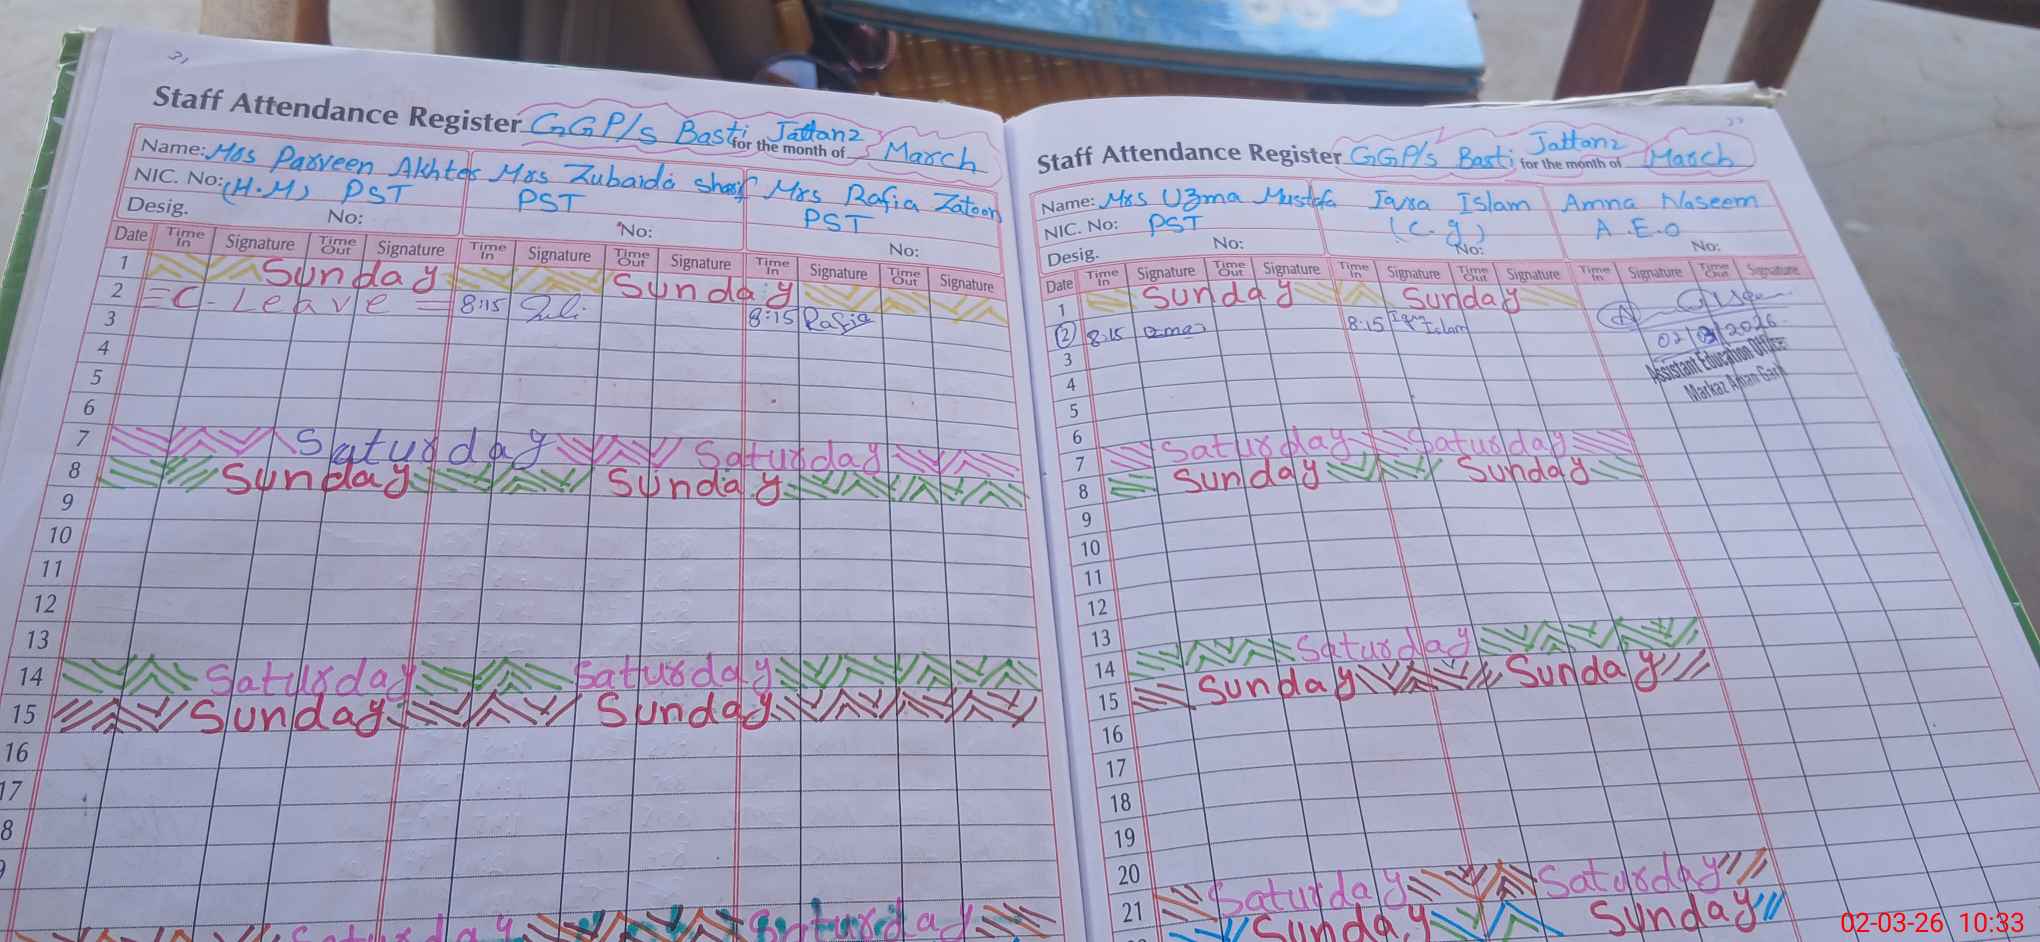 31
Staff Attendance Register GGP/s Basti Jattanz for the month of March
Name: Mrs Parveen Akhter Mrs Zubaida Sharif Mrs Rafia Zatoon
NIC. No: (H.M) PST PST PST
Desig. No: No: No:
Date Time In Signature Time Out Signature Time In Signature Time Out Signature Time In Signature Time Out Signature
1 Sunday Sunday
2 = C - Leave = 8:15 8:15 Rafia
3
4
5
6
7 Saturday Saturday
8 Sunday Sunday
9
10
11
12
13
14 Saturday Saturday
15 Sunday Sunday
16
17
8
Saturday Saturday
Staff Attendance Register GGP/s Basti Jattanz for the month of March
Name: Mrs Uzma Mustafa Iqra Islam Amna Naseem
NIC. No: PST (C.g) A.E.O
Desig. No: No: No:
Date Time In Signature Time Out Signature Time In Signature Time Out Signature Time In Signature Time Out Signature
1 Sunday Sunday
2 8:15 8:15 Iqra Islam
02/03/2026
Assistant Education Officer
Markaz Aman Garh
3
4
5
6
7 Saturday Saturday
8 Sunday Sunday
9
10
11
12
13
14 Saturday
15 Sunday Sunday
16
17
18
19
20
21 Saturday Saturday
Sunday Sunday
02-03-26 10:33